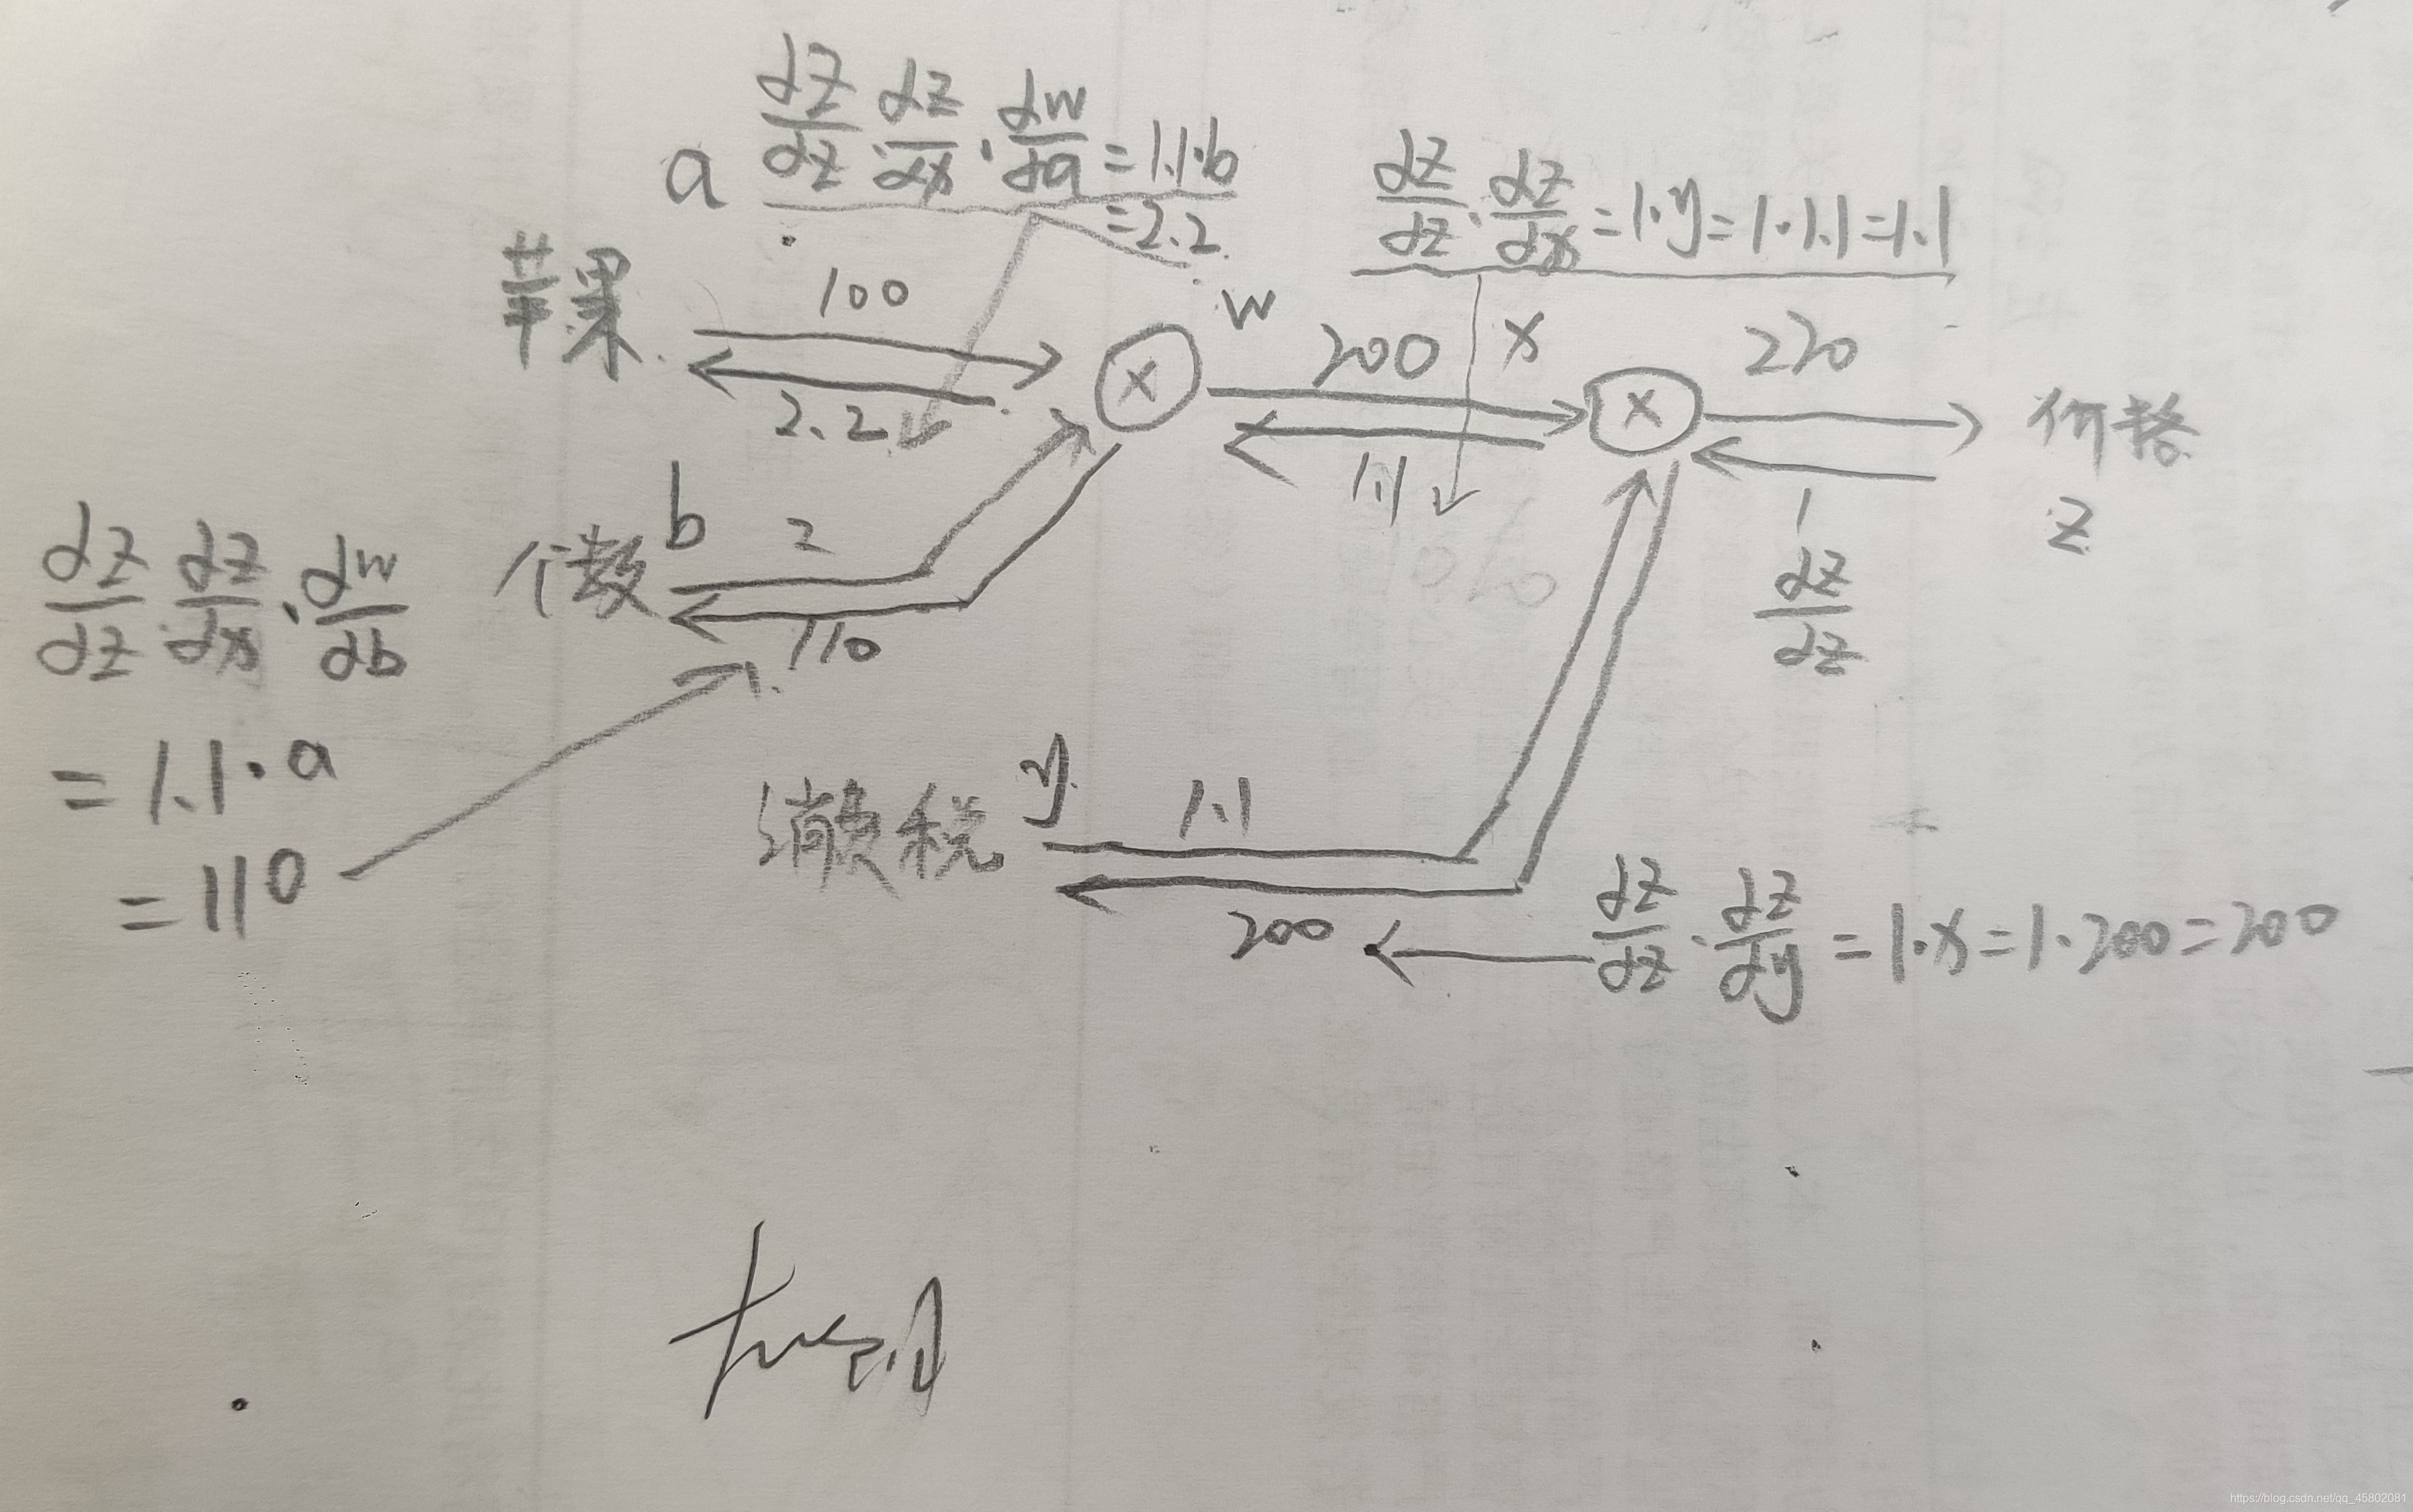 a dz/dz · dz/dx · dw/da = 1.1·b
= 2.2
dz/dz · dz/dx = 1·y = 1·1.1 = 1.1
苹果 100 w 200 x 220
2.2 1.1 1
× × 价格
z
dz/dz
dz/dz · dz/dx · dw/db
= 1.1·a
= 110
个数 b 2
110
10%
消费税 y 1.1
200
dz/dz · dz/dy = 1·x = 1·200 = 200
https://blog.csdn.net/qq_45802081